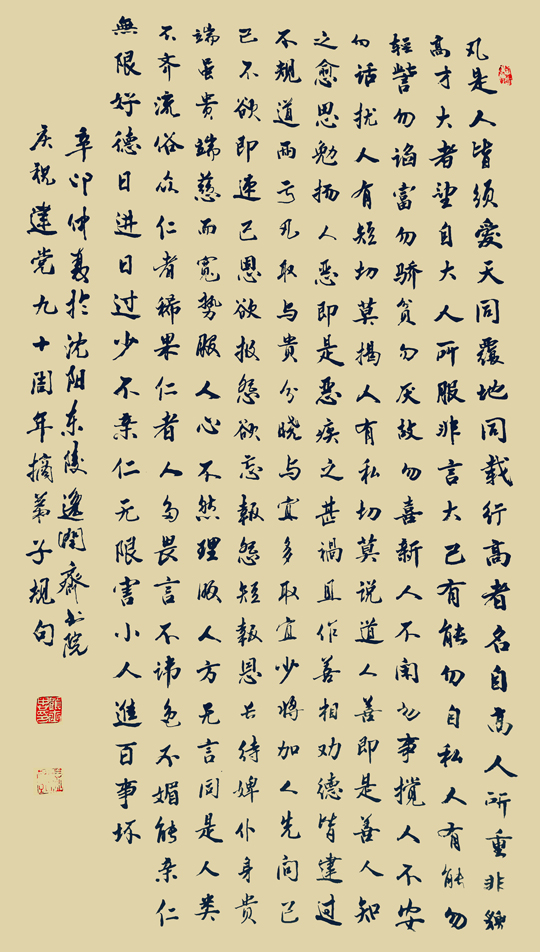 凡是人皆须愛天同覆地同载行高者名自高人所重非貌
高才大者望自大人所服非言大己有能勿自私人有能勿
轻訾勿谄富勿骄贫勿厌故勿喜新人不闲勿事搅人不安
勿话扰人有短切莫揭人有私切莫说道人善即是善人知
之愈思勉扬人恶即是恶疾之甚祸且作善相劝德皆建过
不规道两亏凡取与贵分晓与宜多取宜少将加人先问己
己不欲即速已恩欲报怨欲忘報怨短報恩长待婢仆身贵
端虽贵端慈而寬势服人心不然理服人方无言同是人类
不齐流俗众仁者稀果仁者人多畏言不讳色不媚能亲仁
無限好德日进日过少不亲仁无限害小人進百事坏
辛卯仲夏於沈阳东陵遥斋书院
庆祝建党九十周年摘弟子规句